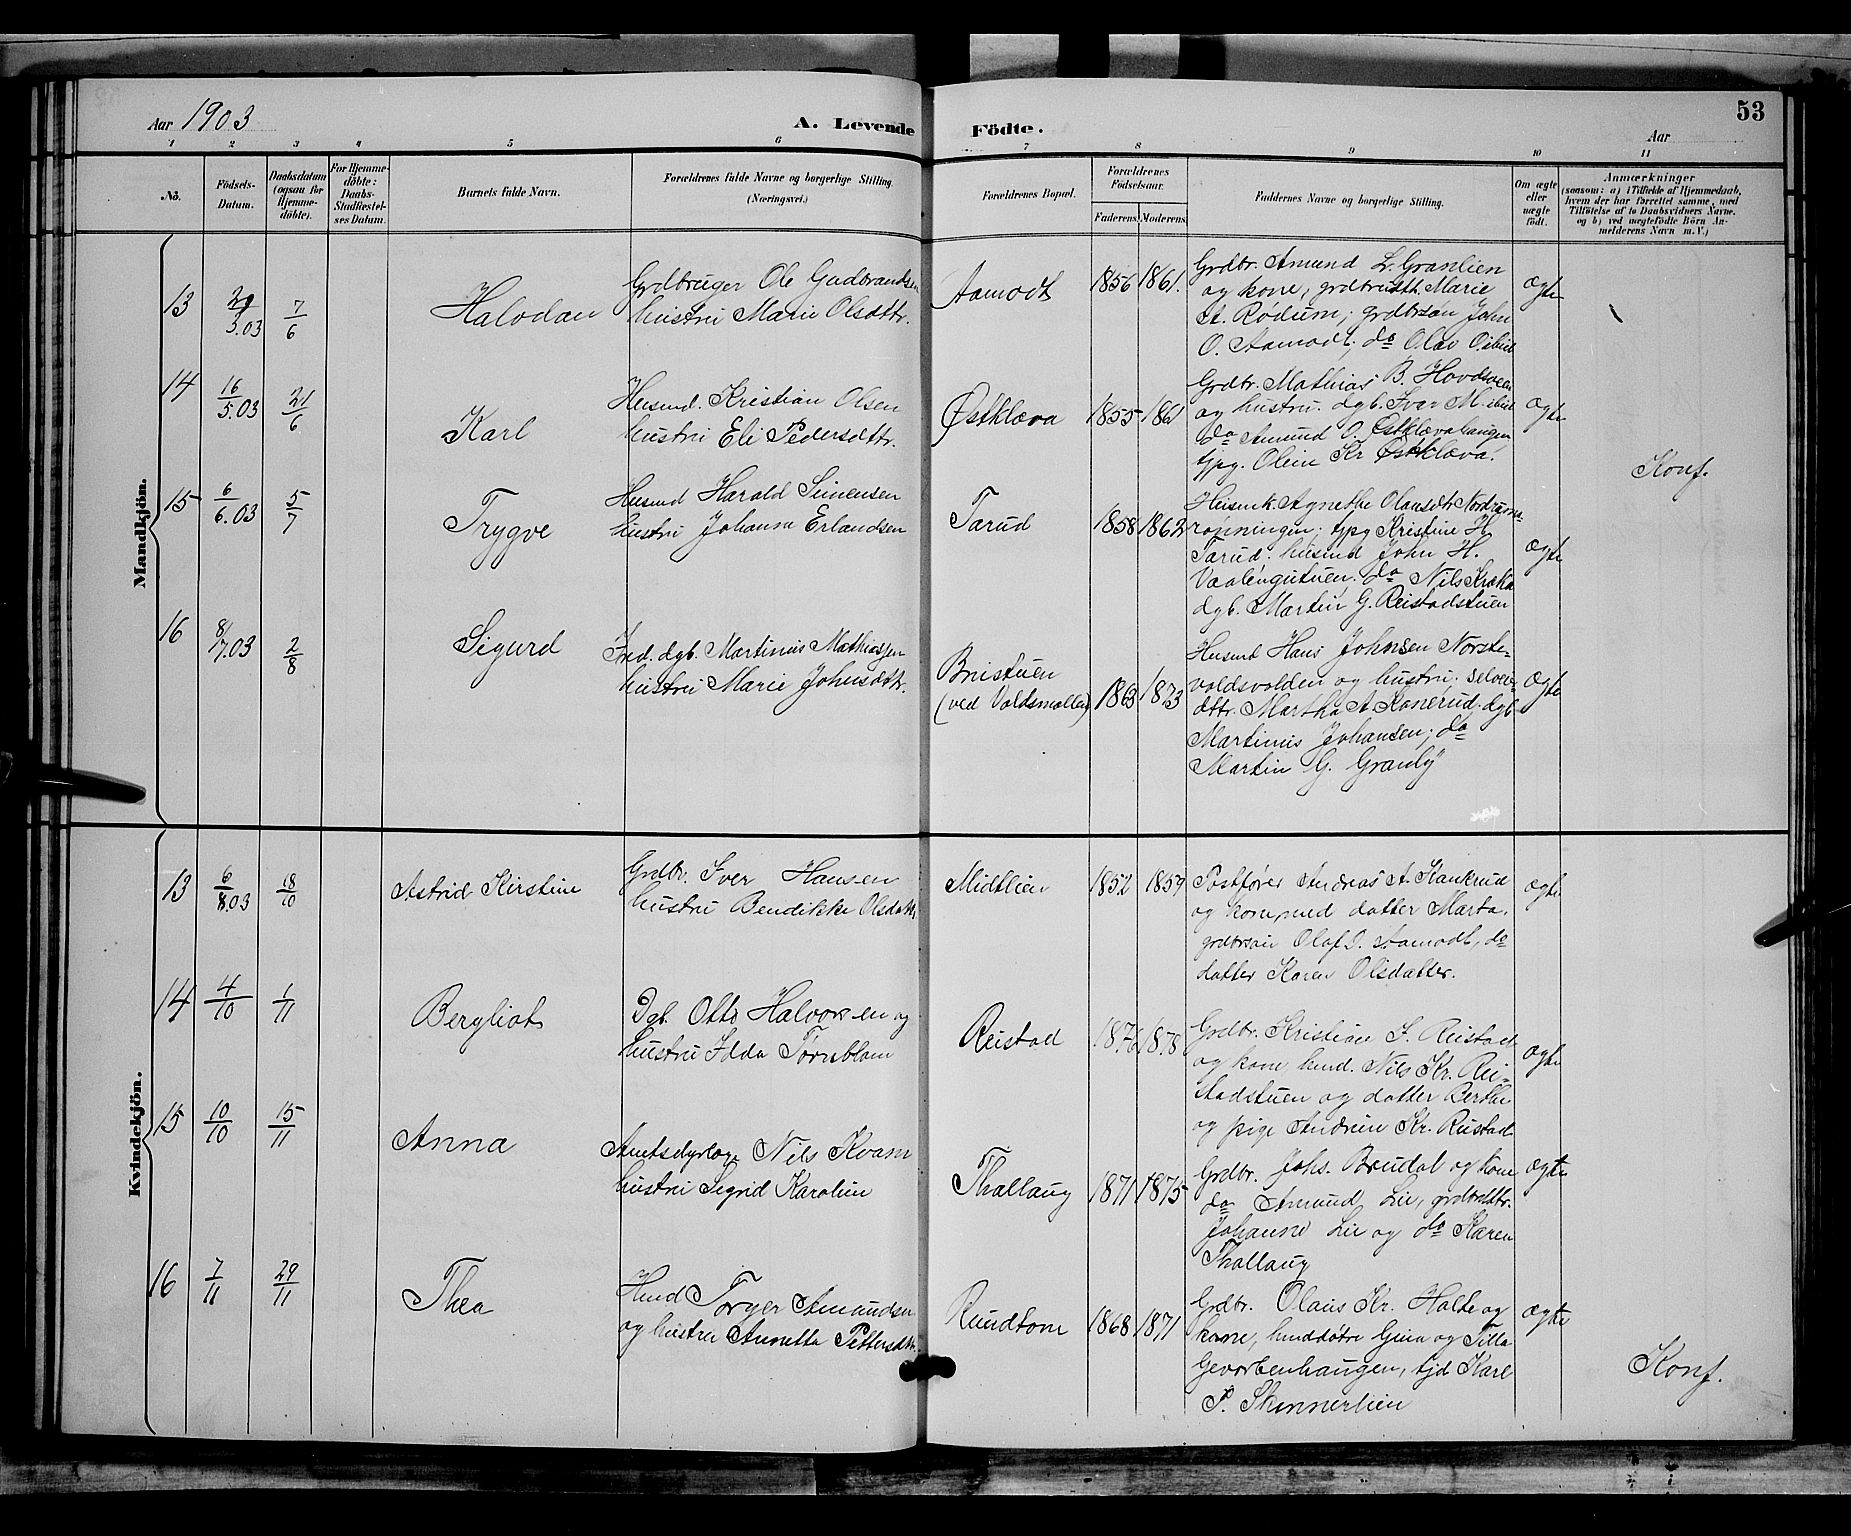 Aar 1903
A. Levende
Födte.
53
Aar
1 2 3 4 5 6 7 8 9 10 11
No.
Födsels-
Datum.
Daabsdatum
(ogsaa for
Hjemme-
döbte).
For Hjemme-
döbte:
Daabs-
Stadfæstel-
ses Datum.
Barnets fulde Navn.
Forældrenes fulde Navne og borgerlige Stilling
(Næringsvei.)
Forældrenes Bopæl.
Forældrenes
Födselsaar.
Faderens. Moderens.
Faddernes Navne og borgerlige Stilling.
Om ægte
eller
uægte
födt.
Anmærkninger
(saasom: a) i Tilfælde af Hjemmedaab,
hvem der har forrettet samme, med
Tilföielse af to Daabsvidners Navne,
og b) ved uægtefödte Börn An-
melderens Navn m. V.)
Mandkjön.
13
5.03
7/6
Halvdan
Grdbruger Ole Gudbrandsen
hustru Marie Olsdttr.
Aamodt
1856 1861.
Grdbr. Amund L. Granlien
og kone, grdbrdttr. Marie
A. Rødum; grdbrsøn John
O. Aamodt, do Olav O. ibid
ægte
14
16/5.03
21/6
Karl
Husmd. Kristian Olsen
hustru Eli Pedersdttr.
Østklæva
1855 1861
Grdbr. Mathias B. Hovdsveen
og hustru. dgb. Ivar M. ibid
do Amund O. Østklævahaugen
tjpg. Oline Kr Østklæva.
ægte
Konf.
15
6/6.03
5/7
Trygve
Husmd Harald Simensen
hustru Johanne Erlandsen
Tarud
1858 1862
Husmk. Agnethe Olausdtr Nordrum-
rønningen; tjpg Kristine H.
Tarud. husmd John H.
Vaalengstuen. do Nils Kræke
dgb. Martin G. Reistadstuen
ægte
16
8/7.03
2/8
Sigurd
Ind. dgb. Martinus Mathiassen
hustru Marie Johnsdttr.
Brustuen
(ved Voldsmøllen)
1863 1873
Husmd Hans Johnsen Norste-
voldsvolden og hustru. selvei-
dttr. Martha A. Konerud. dgb
Martinus Johansen; do
Martin G. Granly
ægte
Kvindekjön.
13
6/8.03
18/10
Astrid Kirstine
Grdbr. Iver Hansen
hustru Bendikke Olsdatter
Midtlien
1852 1859
Postfører Andreas A. Kankrud
og kone, med datter Marta.
grdbrsøn Olaf I. Aamodt, do
datter Karen Olsdatter.
ægte
14
4/10
1/11
Bergliot
Dgl. Otto Halvorsen og
hustru Idda Tørnblom
Reistad
1876 1878
Grdbr. Kristian I. Reistad
og kone, husmd. Nils Kr. Rei-
stadstuen og datter Berthe
og pige Andrine Kr. Reistad.
ægte
15
10/10
15/11
Anna
Amtsdyrlæge Nils Kvam
hustru Sigrid Karoline
Thallaug
1871 1875
Grdbr. Johs. Brudal og kone
do Amund Lie, grdbrdttr.
Johanne Lie og do Karen
Thallaug
ægte
16
7/11
29/11
Thea
Husmd Torger Amundsen
og hustru Annette Pettersdttr.
Rundtom
1868 1871
Grdbr. Olaus Kr. Holte og
kone, husmddøtre Gina og Tilla
Gevorbenhaugen, tjd Karl
P. Skinnerlien
ægte
Konf.